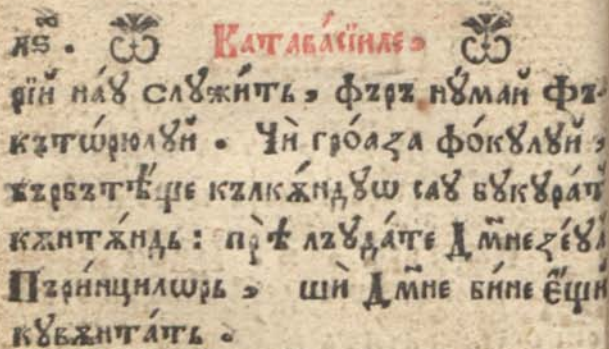 Катава́сїиле,
рїй нáꙋ слꙋжи́ть, фъръ нꙋ́май Фъ-
кътѡ́рюлꙋй. Чѝ грóаꙁа фóкꙋлꙋй,
бърбътѣ́ще кълкѫ́ндꙋѡ саꙋ бꙋкꙋра́т
кѫнтѫ́ндь: прѣ̀ лъꙋда́те Дм҃неꙁéꙋл
Пъри́нцилѡрь, шѝ Дм҃не би́не є҆́щи
кꙋвѫнта́ть.